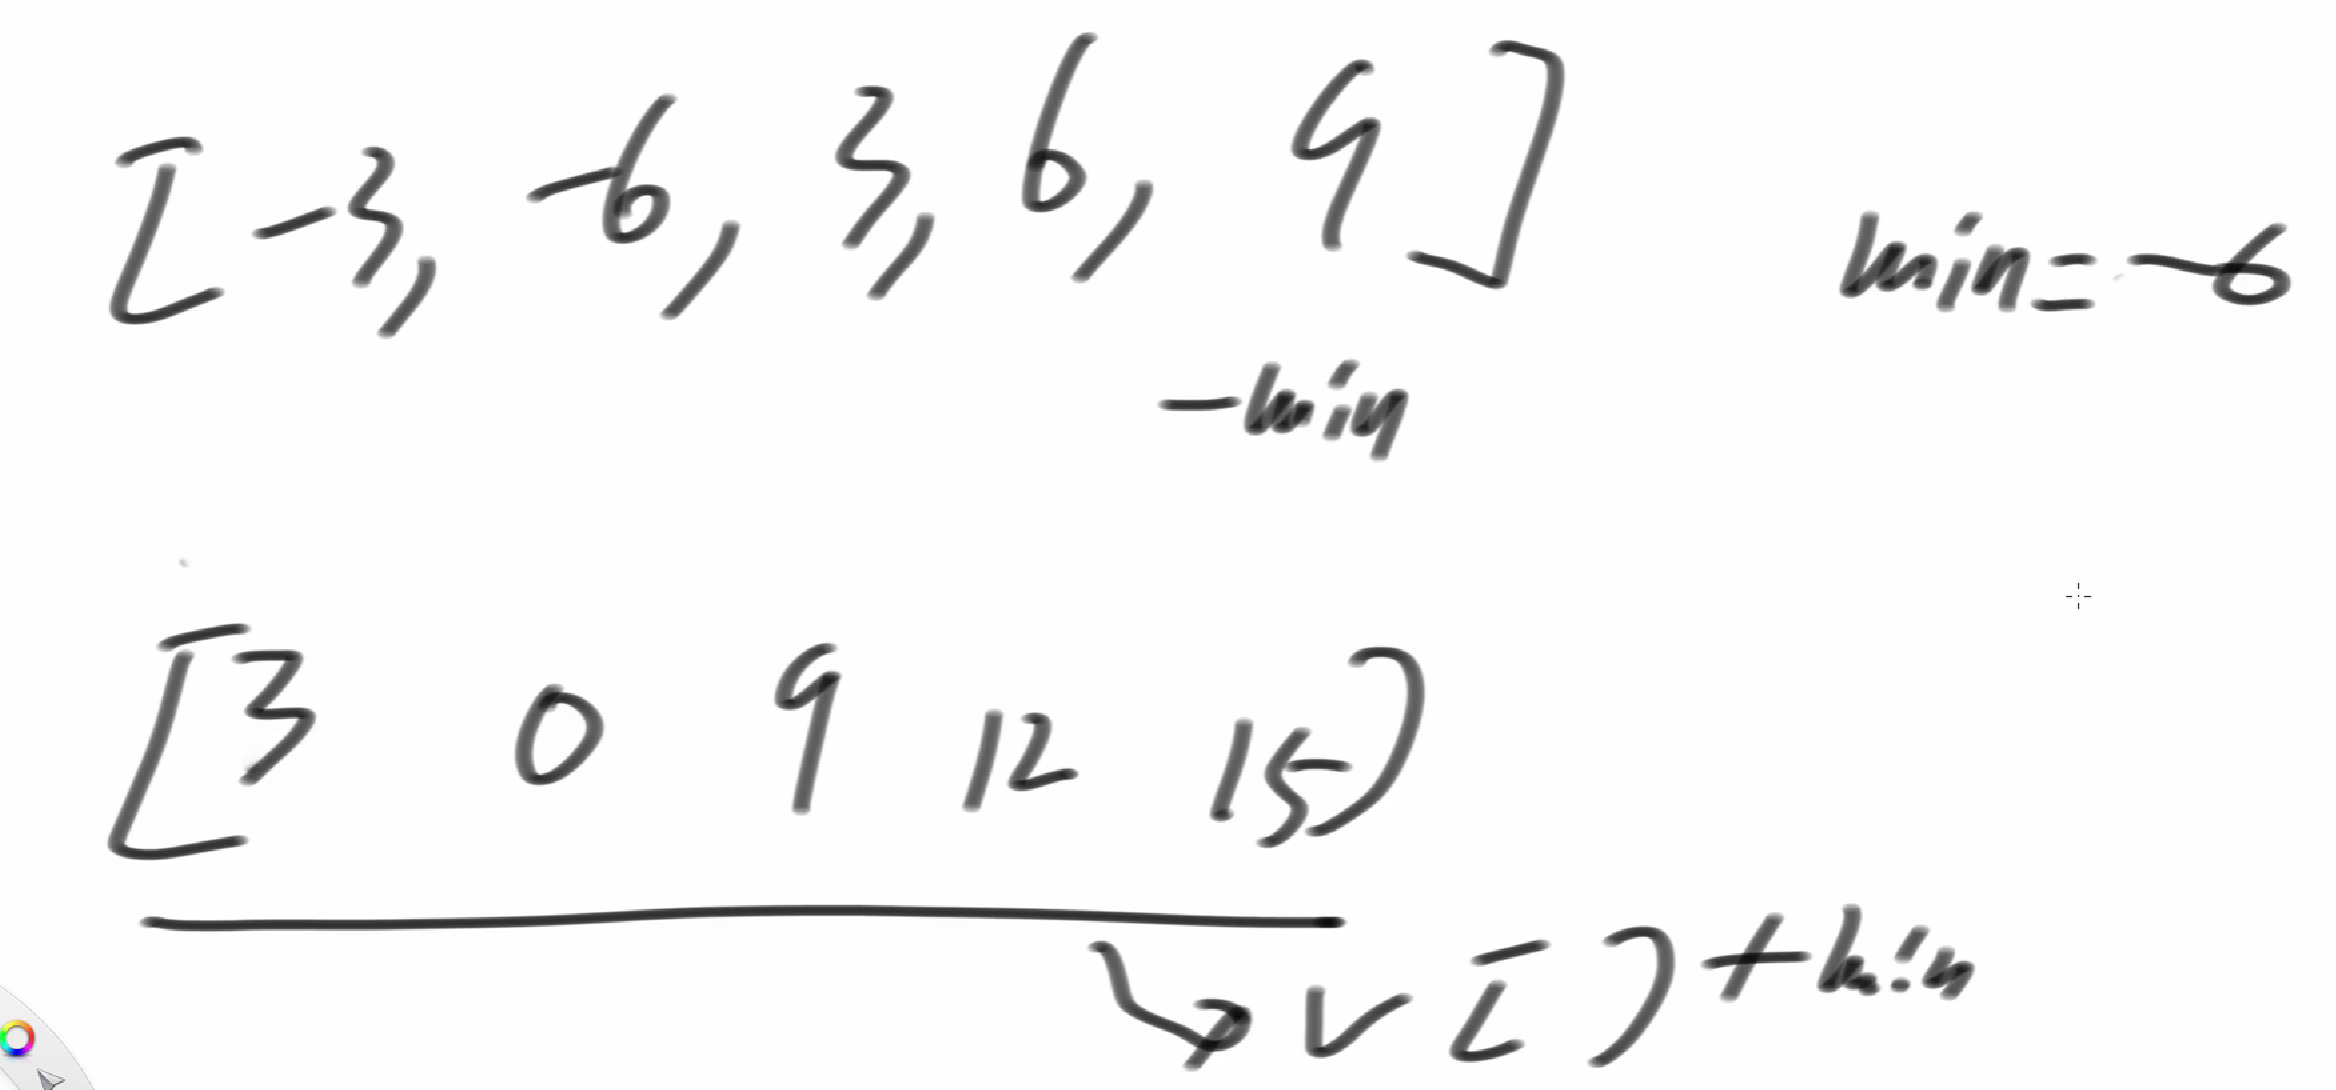 [-3, -6, 3, 6, 9]
min=-6
-min
[3 0 9 12 15]
↳ v[ ] + min